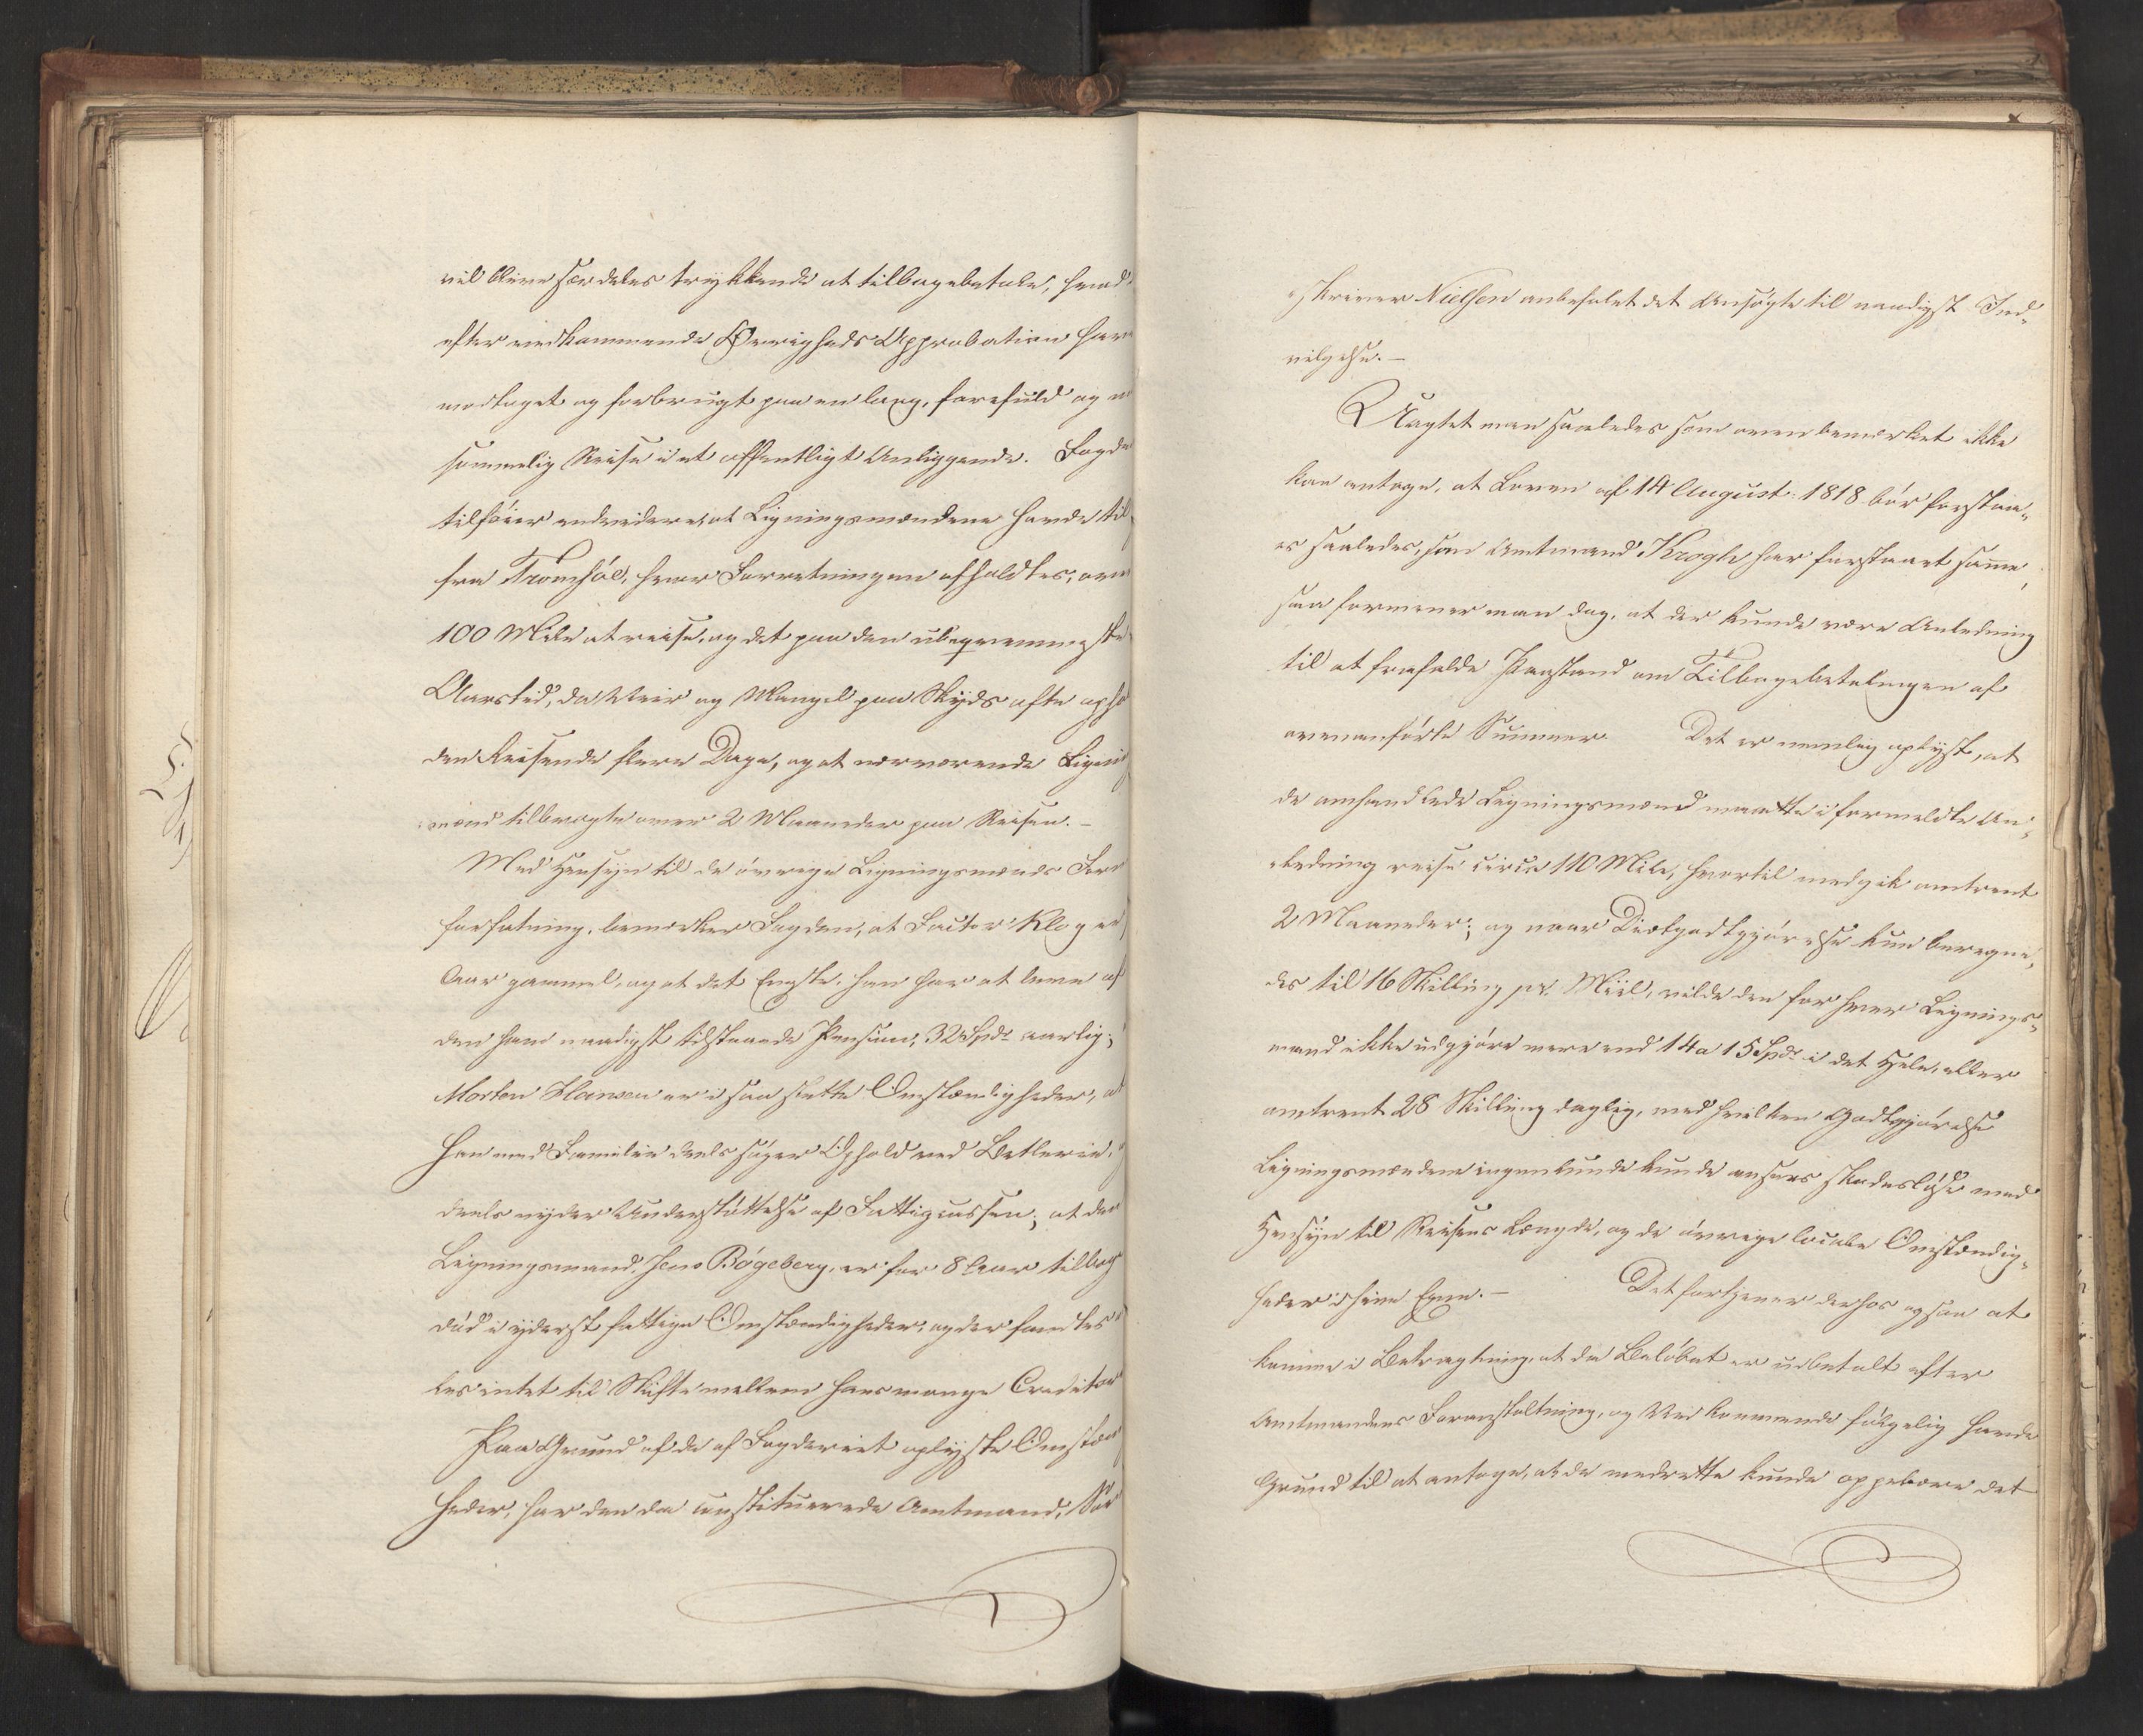 vil blive særdeles trykkende at tilbagebetale, hvad
efter vedkommende Øvrigheds Approbation have
modtaget og forbrugt paa en lang, farefuld og
sommelig Reise i et offentligt Anliggende. Fogde
tilføier endvidere, at Ligningsmændene havde til
fra Tromsøe, hvor Forretningen afholdtes, over
100 Mile at reise, og det paa den ubeqvemmeste
Aarstid, da Veir og Mangel paa Skyds ofte opho
den Reisende flere Dage, og at nærværende Lignin
mænd tilbragte over 2 Maaneder paa Reisen. –
Med Hensyn til de øvrige Ligningsmænds For
forfatning, bemærker Fogden, at Factor Klog er
Aar gammel, og at det Eneste, han har at leve af
den ham naadigst tilstaaede Pension, 32 Spdr aarlig;
Morten Hansen er i saa slette Omstændigheder, at
han med Familie deels søger Ophold ved Betlerie,
deels nyder Understøttelse af Fattigcassen; at den
Ligningsmand, Jens Bøgeberg, er for 8 Aar tilbage
død i yderst fattige Omstændigheder, og der fandtes
les intet til Skifte mellem hans mange Creditor
Paa Grund af de af Fogderiet oplyste Omstæn
heder, har den da constituerede Amtmand, Sor
skriver Nielsen anbefalet det Ansøgte til naadigst Ind„
vilgelse. –
Uagtet man saaledes som ovenbemærket ikke
kan antage, at Loven af 14 August 1818 bør forstaa„
es saaledes, som Amtmand Krogh har forstaaet samme,
saa formener man dog, at der kunde være Anledning
til at frafalde Paastand om Tilbagebetalingen af
ovenanførte Summer. Det er nemlig oplyst, at
de omhandlede Ligningsmænd maatte i formeldte An„
ledning reise circa 110 Mile, hvortil medgik omtrent
2 Maaneder; og naar Diætgodtgjørelse kun beregne„
des til 16 Skilling pr. Miil, vilde den for hver Lignings„
mand ikke udgjøre mere end 14 a 15 Spdr i det Hele, eller
omtrent 28 Skilling daglig, med hvilken Godtgjørelse
Ligningsmændene ingenlunde kunde ansees skadesløse med
Hensyn til Reisens Længde, og de øvrige locale Omstændig„
heder i hine Egne. – Det fortjener derhos ogsaa at
komme i Betragtning, at die Beløbet er udbetalt efter
Amtmandens Foranstaltning, og Vedkommende følgelig havde
Grund til at antage, at de medrette kunde oppebære det